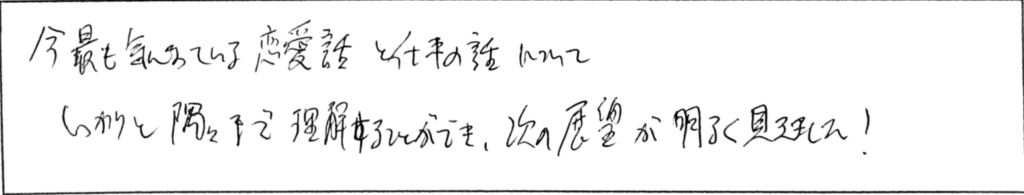 今最も気になっている恋愛話と仕事の話について
しっかりと隅々まで理解することができ、次の展望が明るく見えました!